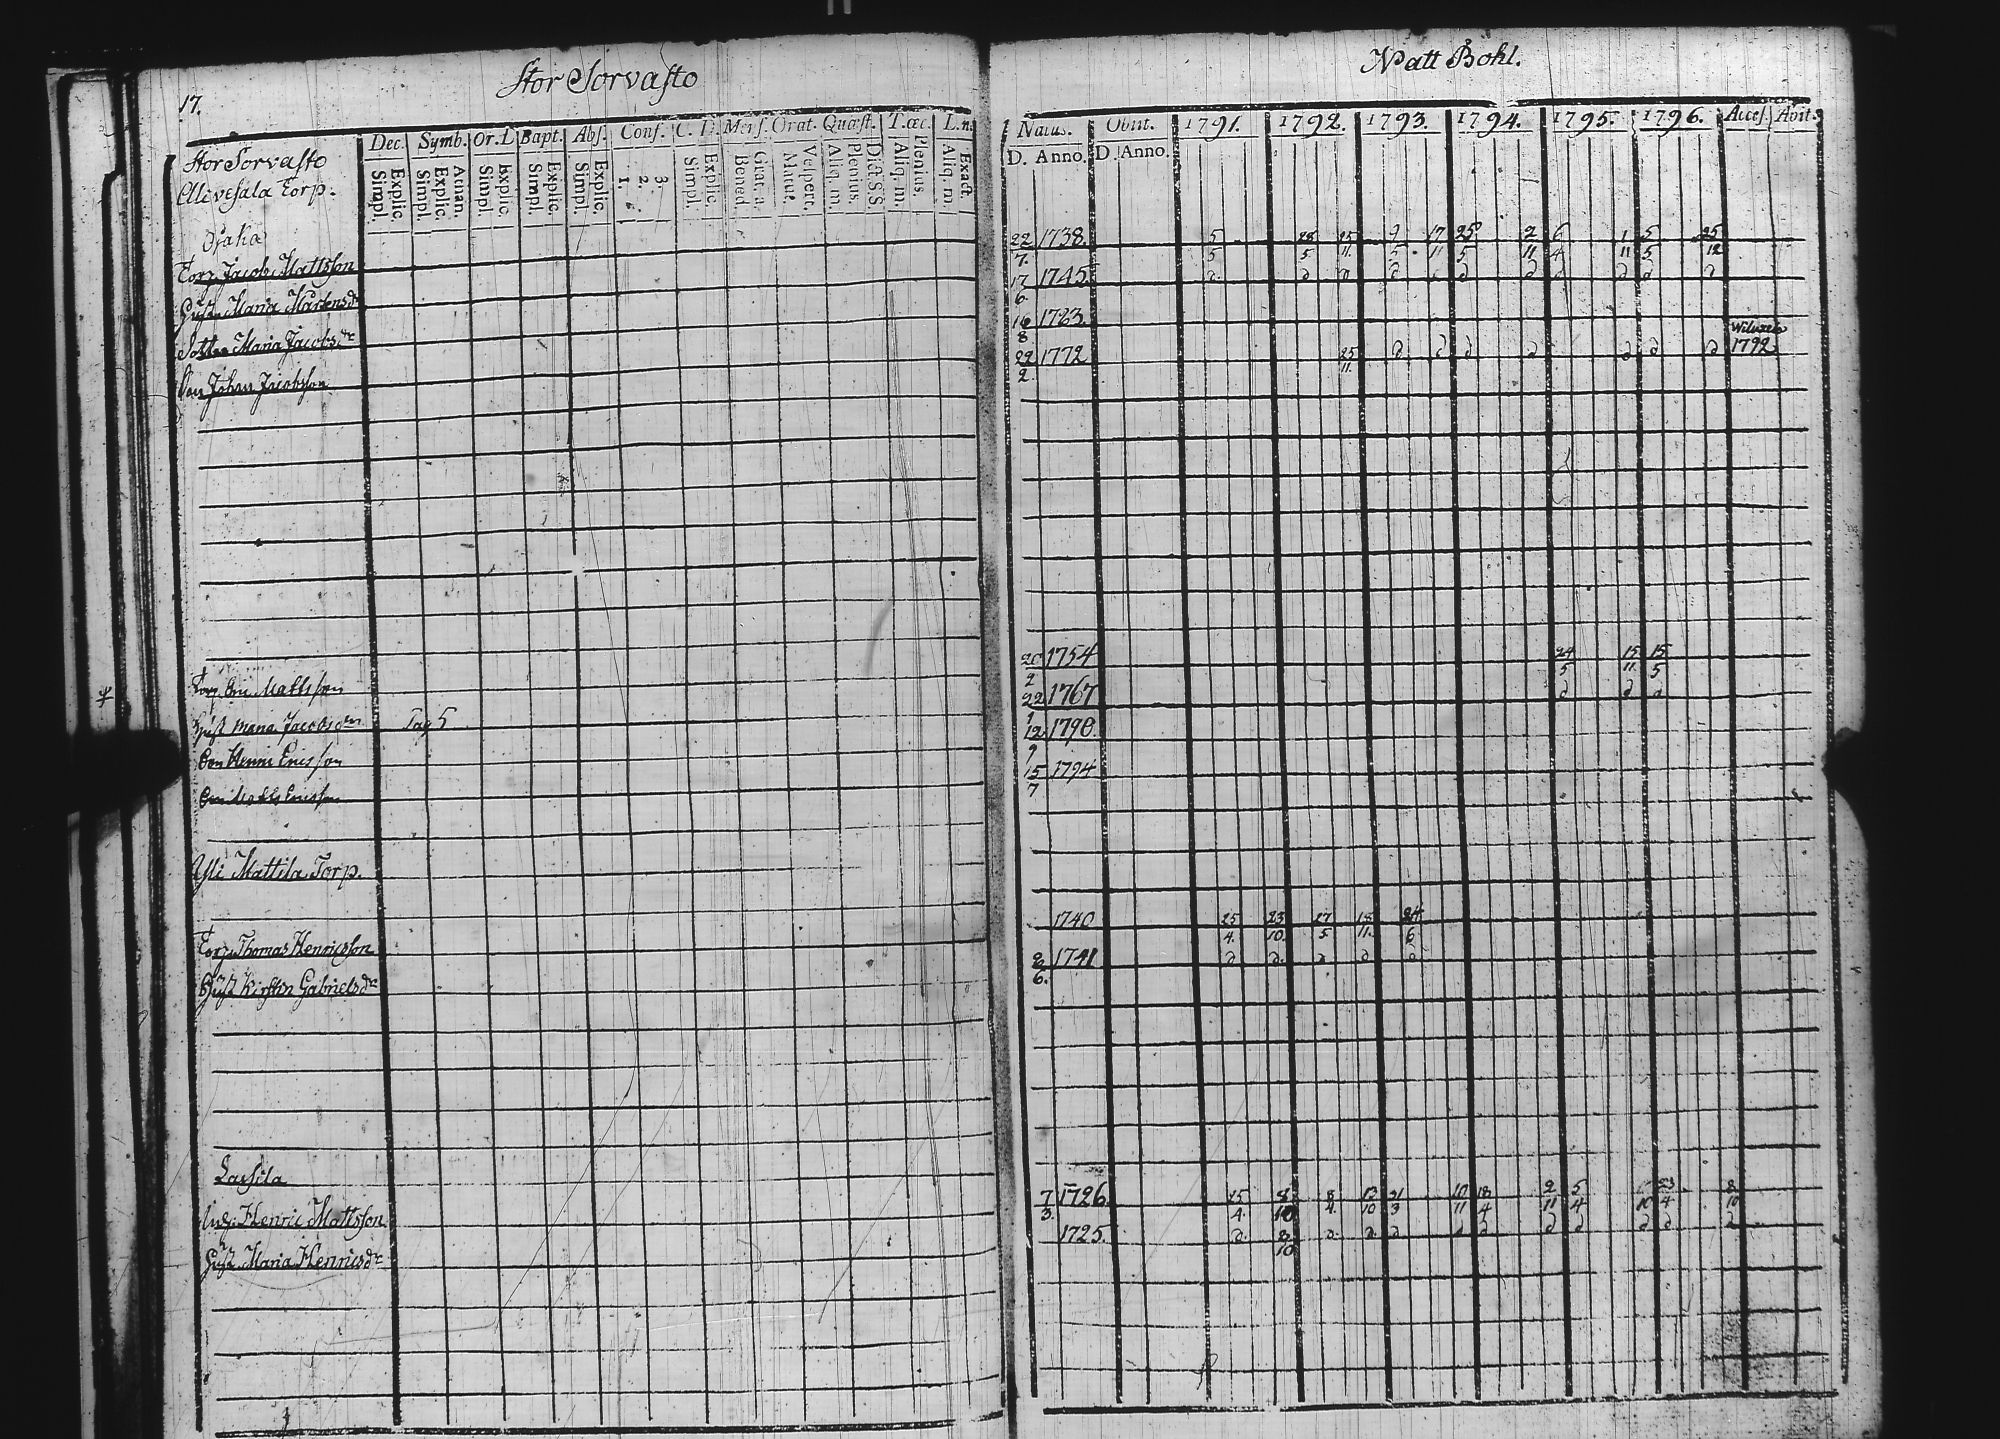 17.
Stor Sorvasto
Natt Bohl.
Dec. Symb. Or. D. Bapt. Abs. Conf. C. D. Mens. Orat. Quæst. T. œc. L. n.
Simpl. Explic. Simpl. Explic. Athan. Simpl. Explic. Simpl. Explic. Simpl. Explic. 1. 2. 3. Simpl. Explic. Bened. Grat. a. Matut. Vespert. Aliq. m. Plenius. Dict. S. S. Aliq. m. Plenius. Aliq. m. Exact.
Natus. Obiit. 1791. 1792. 1793. 1794. 1795. 1796. Acces. Abit.
D. Anno. D. Anno.
Stor Sorvasto
Torp.
Ojaka
Torp. Jacob Mattsson 22/7 1738. 5/5 28/5 25/11 9/5 17/11 25/5 2/11 6/4 1/11 5/5 25/12
Hust. Maria Mårtensdr 17/6 1745. d. d d d d d d d d d d
Dotter Maria Jacobsdr 16/8 1783.
Son Johan Jacobsson 22/2 1772 25/11 d d d d d d d 1792
Torp. Eric Mattsson 20/2 1754 24/5 15/11 15/5
Hust Maria Jacobsdr Pag 5 22/1 1767 d d d
Son Henric Ericsson 12/9 1790.
Son Matts Ericsson 15/7 1794
Yli Mattila Torp.
Torp. Thomas Henricsson 1740 25/4. 23/10. 27/5 18/11. 24/6
Hust Kirstin Gabrielsdr 8/6. 1741 d d. d d d
Lassila
Inh. Henric Mattsson 7/3. 1726. 15/4. 8/10 8/4. 12/10 21/3 10/11 18/4 2/11 5/4 23/4 8/10
Hust. Maria Henricsdr 1725. d. 8/10 d. d. d d d d d d d d